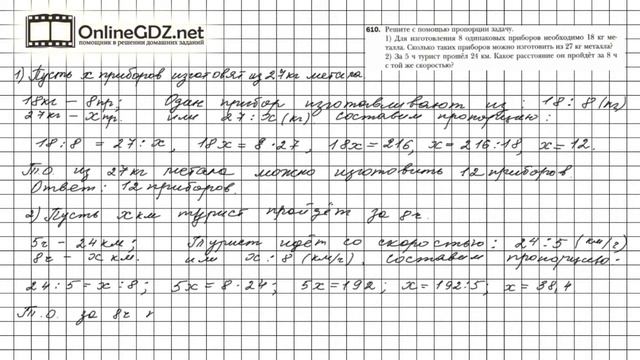 OnlineGDZ.net
помощник в решении домашних заданий
610. Решите с помощью пропорции задачу.
1) Для изготовления 8 одинаковых приборов необходимо 18 кг ме-
талла. Сколько таких приборов можно изготовить из 27 кг металла?
2) За 5 ч турист прошёл 24 км. Какое расстояние он пройдёт за 8 ч
с той же скоростью?
1) Пусть x приборов изготовят из 27 кг метала.
18кг – 8пр; Один прибор изготавливают из: 18:8 (кг)
27кг – x пр. или 27:x (кг) составим пропорцию:
18:8 = 27:x, 18x = 8·27, 18x = 216, x = 216:18, x = 12.
Т.О. из 27кг метала можно изготовить 12 приборов
Ответ: 12 приборов.
2) Пусть x км турист пройдёт за 8ч.
5ч – 24км; Турист идёт со скоростью: 24:5 (км/ч)
8ч – x км. или x:8 (км/ч). составим пропорцию:
24:5 = x:8; 5x = 8·24; 5x = 192; x = 192:5; x = 38,4
Т.О. за 8ч